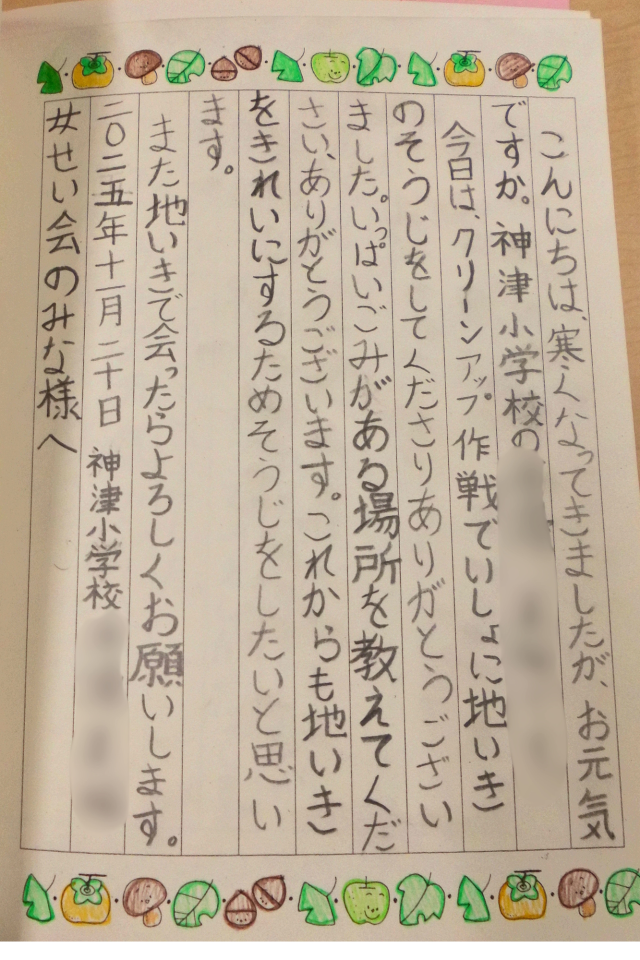 こんにちは、寒くなってきましたが、お元気
ですか。神津小学校の
今日は、クリーンアップ作戦でいしょに地いき
のそうじをしてくださりありがとうござい
ました。いっぱいごみがある場所を教えてくだ
さい、ありがとうございます。これからも地いき
をきれいにするためそうじをしたいと思い
ます。
また地いきで会ったらよろしくお願いします。
二〇二五年十一月二十日 神津小学校
女せい会のみな様へ